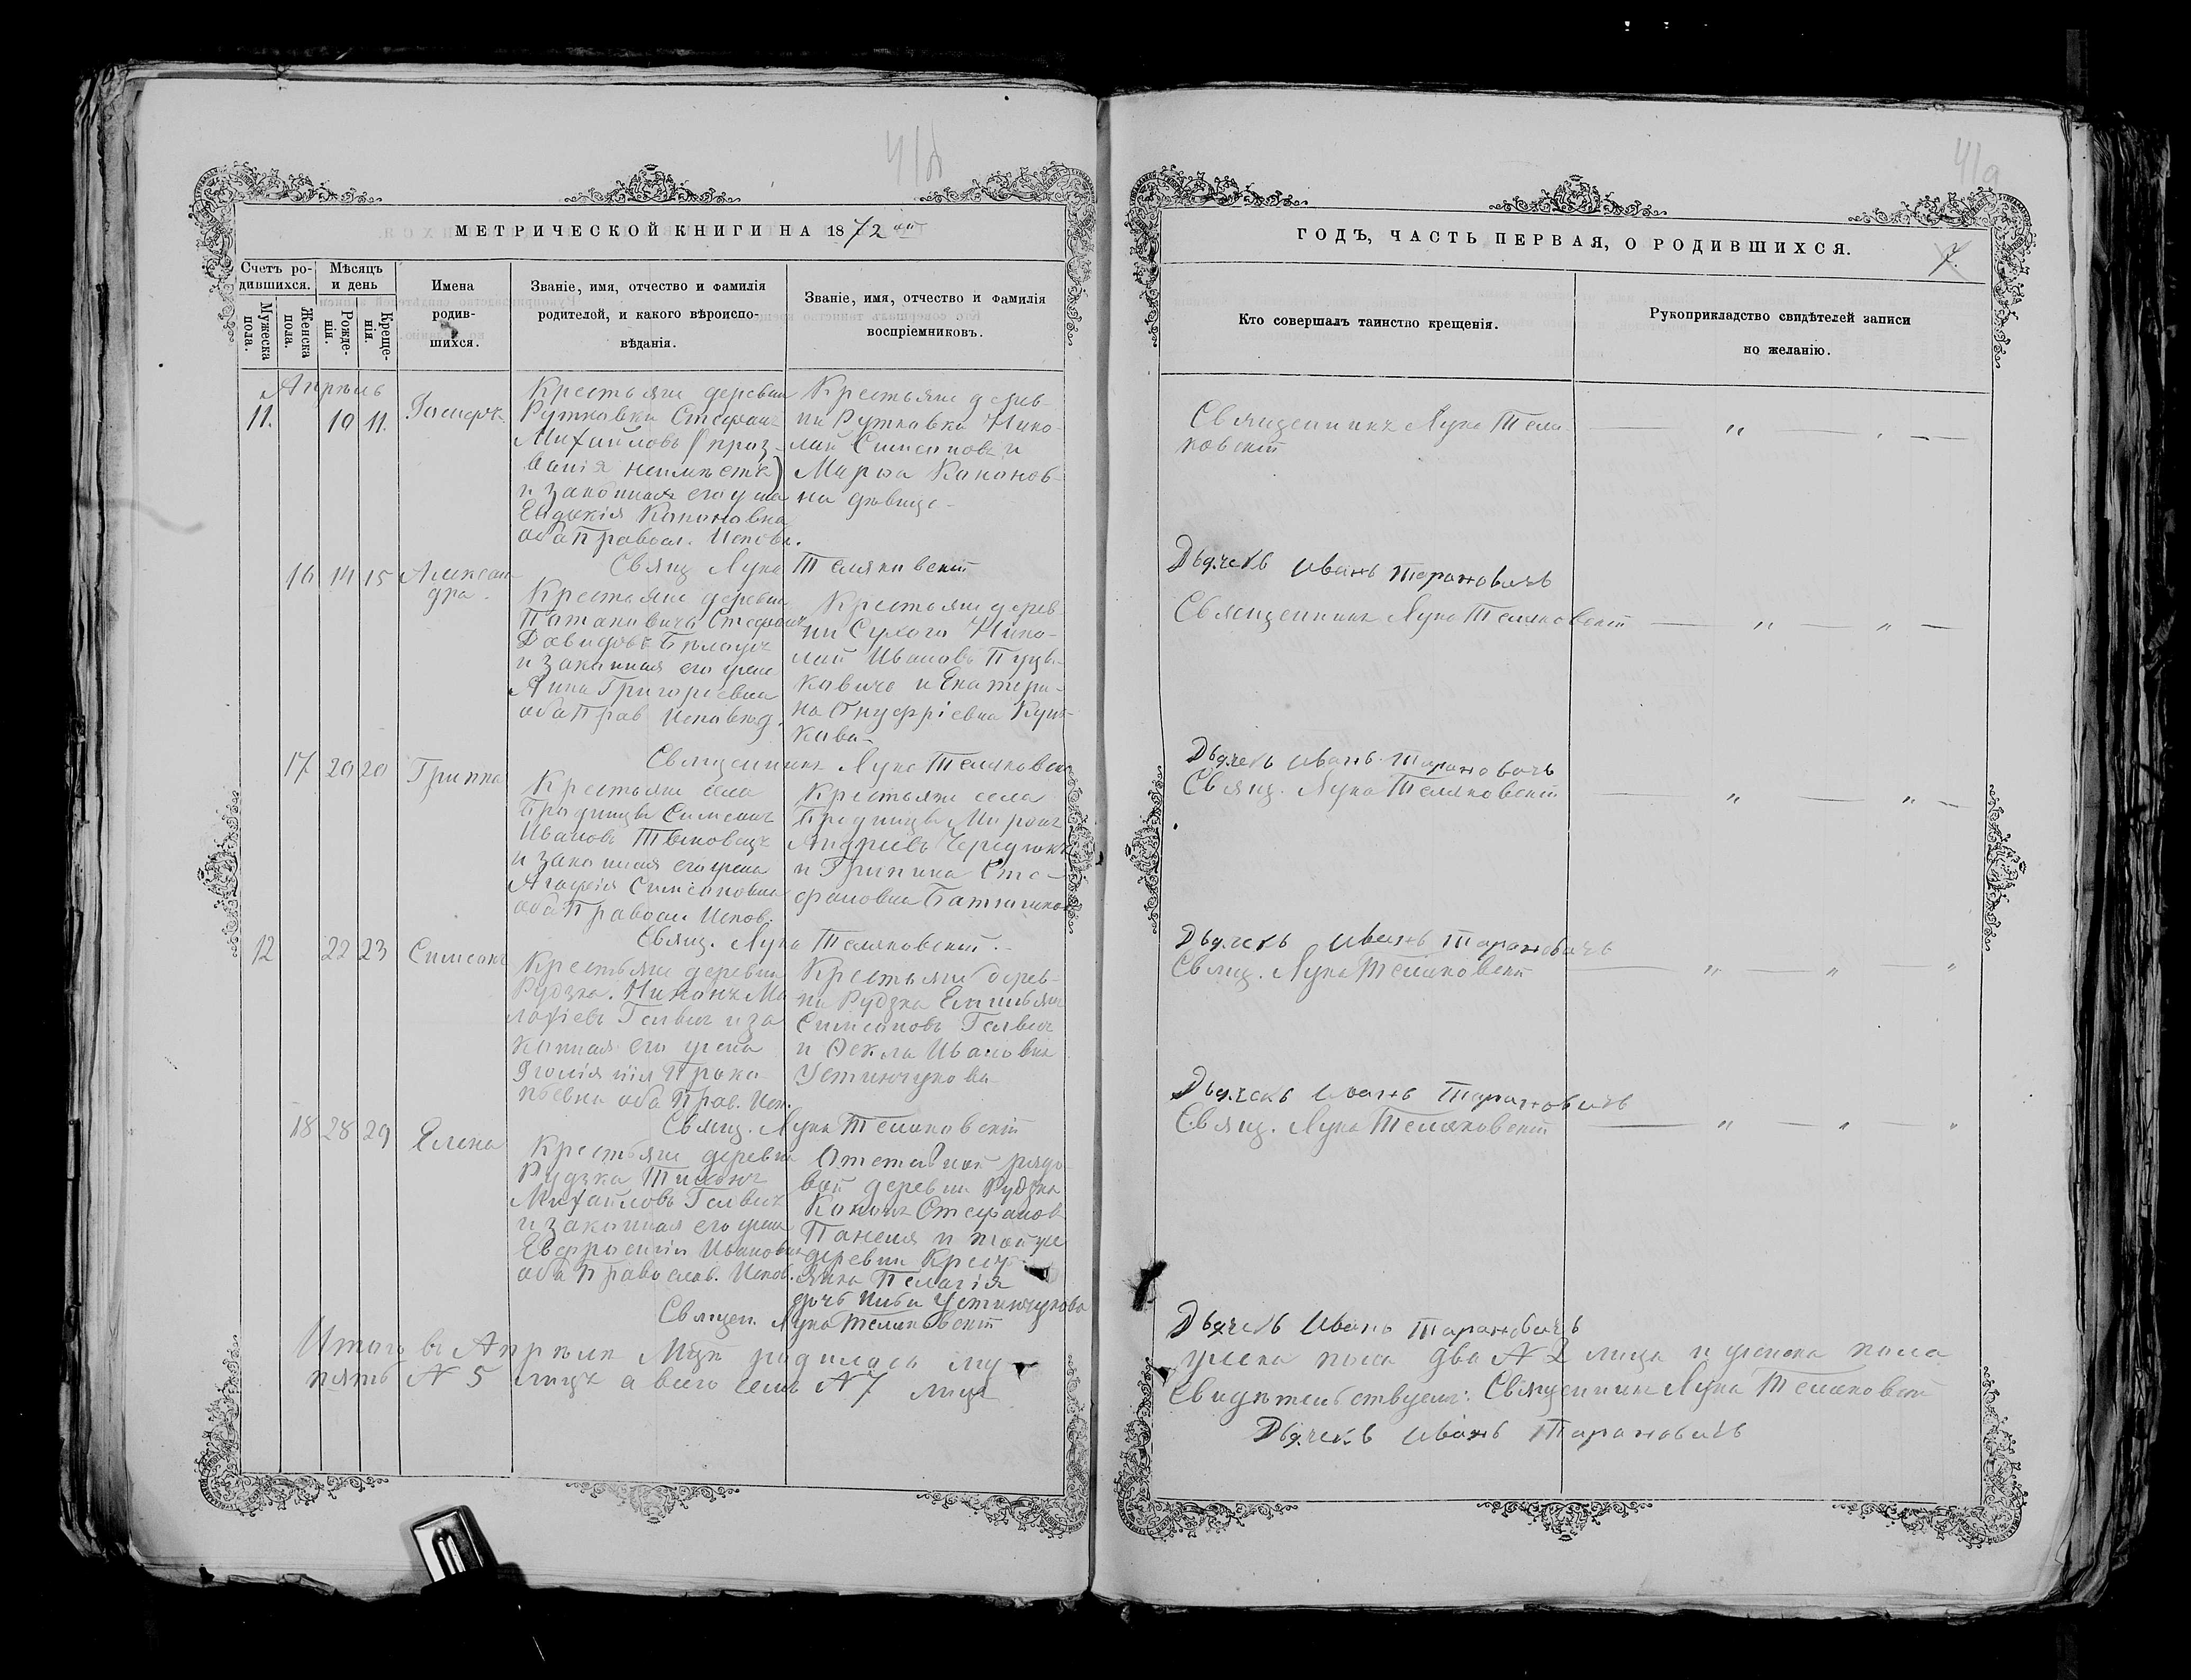 41б
МЕТРИЧЕСКОЙ КНИГИ НА 1872 ой
Счетъ ро-
дившихся.
Мужеска
пола.
Женска
пола.
Мѣсяцъ
и день
Рожде-
нія.
Креще-
нія.
Имена
родив-
шихся.
Званіе, имя, отчество и фамилія
родителей, и какого вѣроиспо-
вѣданія.
Званіе, имя, отчество и фамилія
воспріемниковъ.
Апрѣль
11. 10 11.
Крестьяне деревни
Рутковки Стефанъ
Михайловъ (проз-
ванія неимѣетъ)
и законная его жена
Евдокія Кононовна
оба Правосл. Испов.
Крестьяне дерев-
ни Рутковки Нико-
лай Симеоновъ и
Марѳа Кононов-
на дѣвица
Свящ Лука Теляковскій
16 14 15
Алексан-
дра.
Крестьяне деревни
Стефанъ
Давидовъ
и законная его жена
Анна Григоріевна
оба Прав Исповѣд.
Крестьяне дерев
ни Сухого Нико-
лай Ивановъ Пуць-
ковичъ и Екатери-
на Онуфріевна
кова
Священникъ Лука Теляковскій
17 20 20 Грипина
Крестьяне села
Симеонъ
Ивановъ
и законная его жена
Агафія Симеоновна
оба Правосл Испов.
Крестьяне села
Миронъ
Андреевъ
и Грипина Сте-
фановна
Свящ. Лука Теляковскій.
12 22 23 Симеонъ
Крестьяне деревни
Рудзка. Никонъ Ма
лахіевъ Гельвич и за
конная его жена
Проко
пьевна оба Прав. Исп.
Крестьяне дерев-
ни Рудзка Емильянъ
Симеоновъ Гельвич
и Ѳекла Ивановна
Устинчукова
Свящ. Лука Теляковскій
18 28 29 Елена
Крестьяне деревни
Рудзка
Михайловъ Гельвич
и законная его жена
Евфросинія Ивановна
оба Православ. Испов.
Отставной рядо
вой деревни Рудзка
Кононъ Стефановъ
и той же
деревни Крест
янка Пелагія
дочь Устинчукова
Священ. Лука Теляковскій
Итого въ Апрѣлѣ Мцѣ родилось му
пять № 5 лицъ а всего семь № 7 лицъ
41а
ГОДЪ, ЧАСТЬ ПЕРВАЯ, О РОДИВШИХСЯ.
7.
Кто совершалъ таинство крещенія.
Рукоприкладство свидѣтелей записи
по желанію.
Священникъ Лука Теля
ковскій
Дьячекъ Иванъ Тарановичъ
Священникъ Лука Теляковскій
Дьячекъ Иванъ Тарановичъ
Свящ. Лука Теляковскій
Дьячекъ Иванъ Тарановичъ
Свящ. Лука Теляковскій
Дьячекъ Иванъ Тарановичъ
Свящ. Лука Теляковскій
Дьячекъ Иванъ Тарановичъ
жеска пола два № 2 лица и женска пола
Свидѣтельствуемъ: Священникъ Лука Теляковскій
Дьячекъ Иванъ Тарановичъ